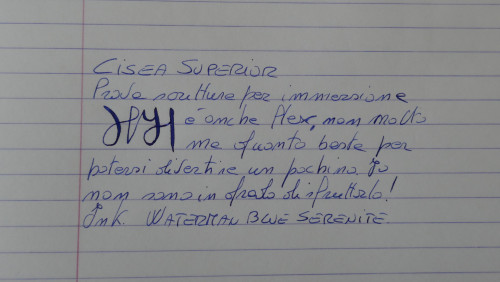 CISEA SUPERIOR
Prova scritture per immersione
è anche Flex, non molto
ma quanto basta per
potersi divertire un pochino. Io
non sono in grado di sfruttarlo!
Ink. WATERMAN BLUE SERENITE.